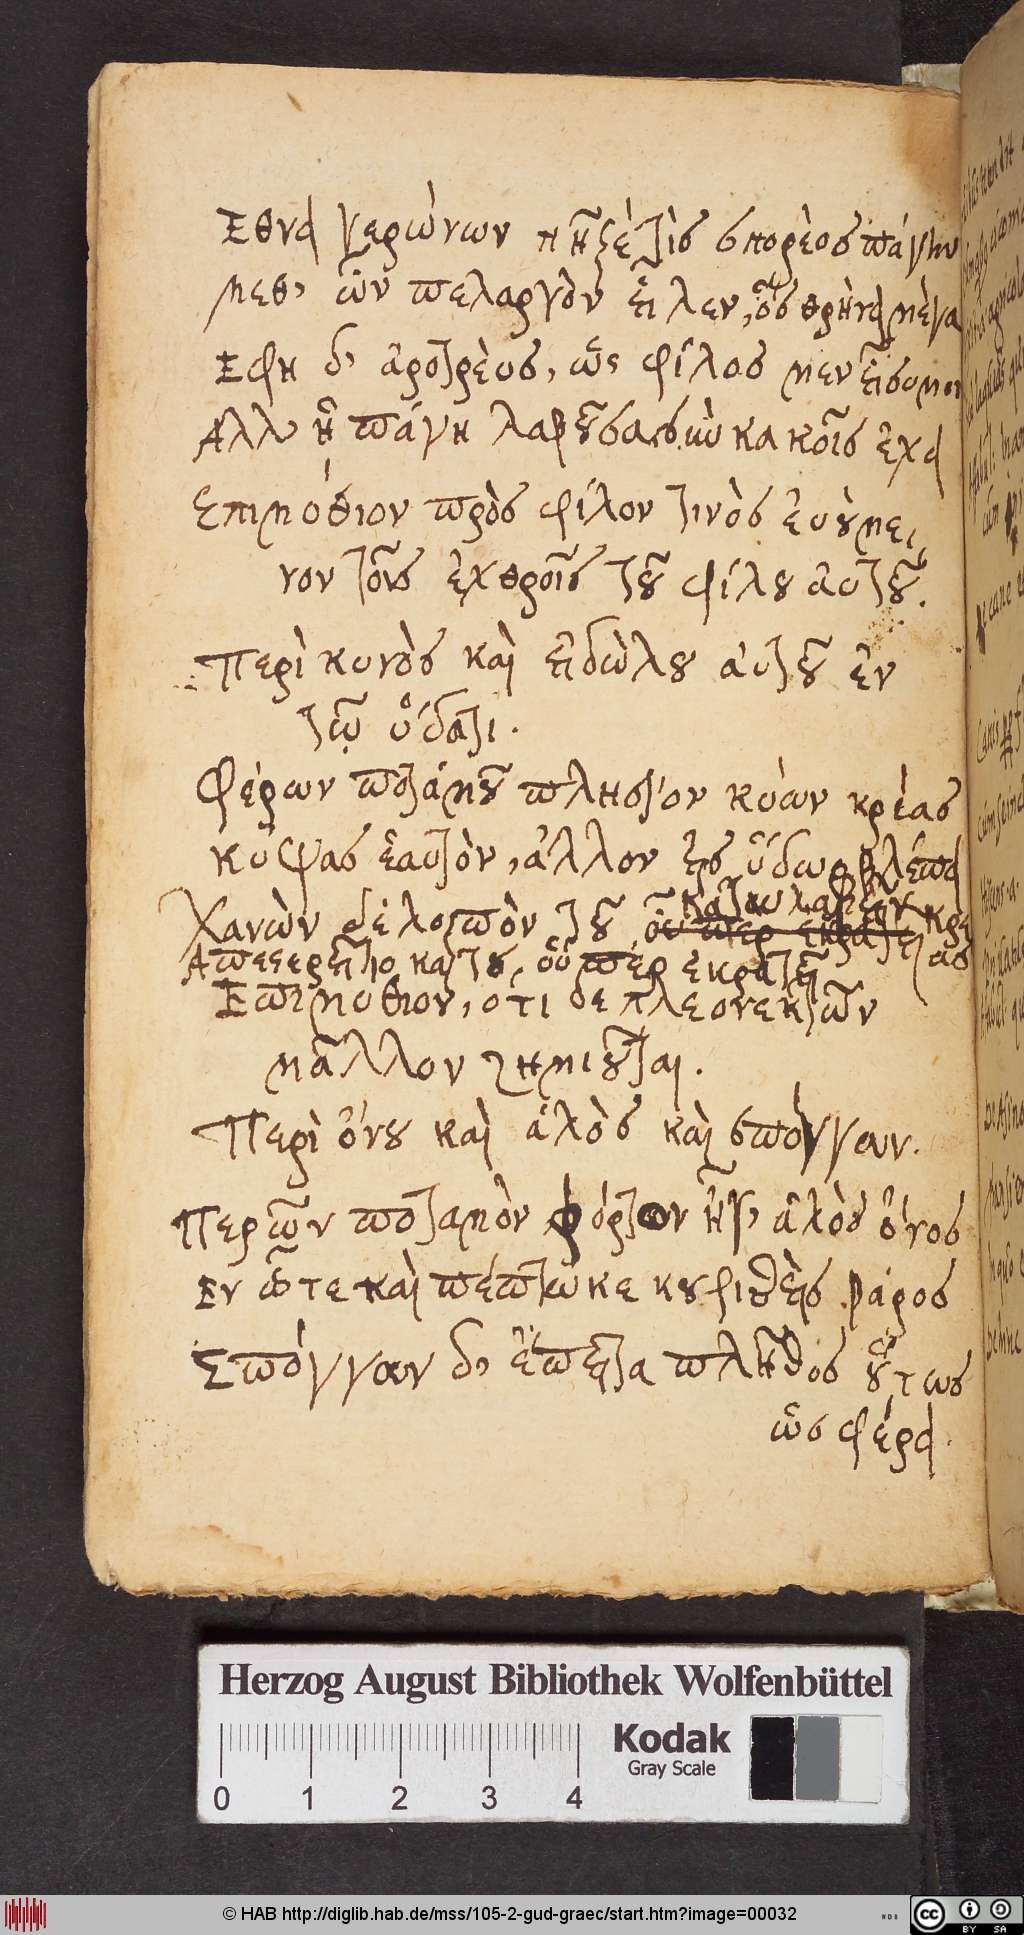 Εθνει γερώνων πῆξέ τὶς σπορέος πάγην
μεθ' ὧν πελαργὸν εἷλεν, ὃς θρήνει μέγα
Εφη δ' ἀροτρέυς, ὧς φίλος μεν εἶ
Αλλ' ἡ πάγη κακοῖς ἔχει
Επιμύθιον πρὸς φίλον τινὸς
νον τοῖς ἐχθροῖς τοῦ φίλου αυτοῦ.
Περὶ κυνὸς καὶ εἰδώλου αὐτοῦ ἐν
τῷ ὕδατι.
Φέρων ποτάμου πλησίον κύων κρέας
κύψας ἑαυτὸν, ἄλλον εἰς ὕδωρ βλέπει
Χανὼν δὲ λοιπὸν τοῦ κατωλαβεῖν κρέ
ας
Απεστερεῖτο καὶ του, οὗ πὲρ ἐκράτει
Επιμυθιον, οτι δε πλεονεκτῶν
μᾶλλον ζημιοῦται.
Περὶ ὄνου καὶ ἁλὸς καὶ σπόγγων.
Περῶν ποταμὸν φόρτον ἦγ' ἁλὸς ὄνος
Εν ᾧτε καὶ πέπτωκε κουφισθεὶς βάρος
Σπόγγων δ' ἔπειτα πλῆθος οὕτως
ὡς φέρει.
Herzog August Bibliothek Wolfenbüttel
Kodak
Gray Scale
0 1 2 3 4
© HAB http://diglib.hab.de/mss/105-2-gud-graec/start.htm?image=00032
cc BY SA